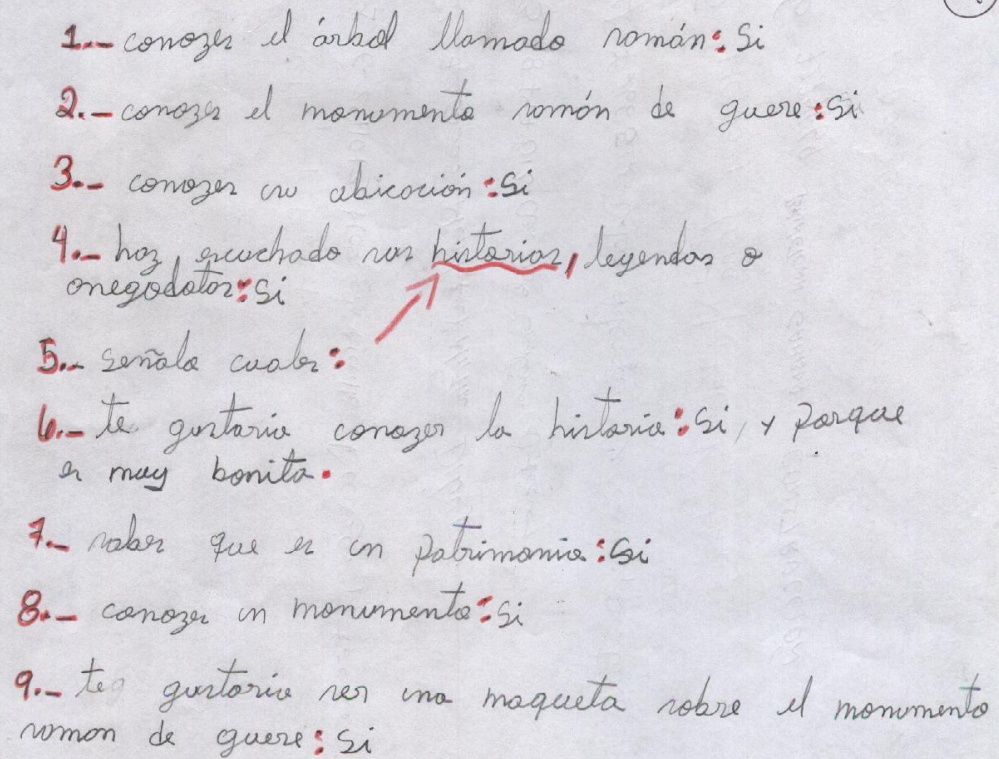 1.- conozes el árbol llamado samán: Si
2.- conozes el monumento samán de guere: Si
3.- conozes su ubicación: Si
4.- haz escuchado sus historias, leyendas o
anegodotas: Si
5.- señala cuales:
6.- te gustaria conozer la historia: Si, y Porque
es muy bonita.
7.- sabes que es un Patrimonio: Si
8.- conozes un monumento: Si
9.- te gustaria ser una maqueta sobre el monumento
saman de guere: Si